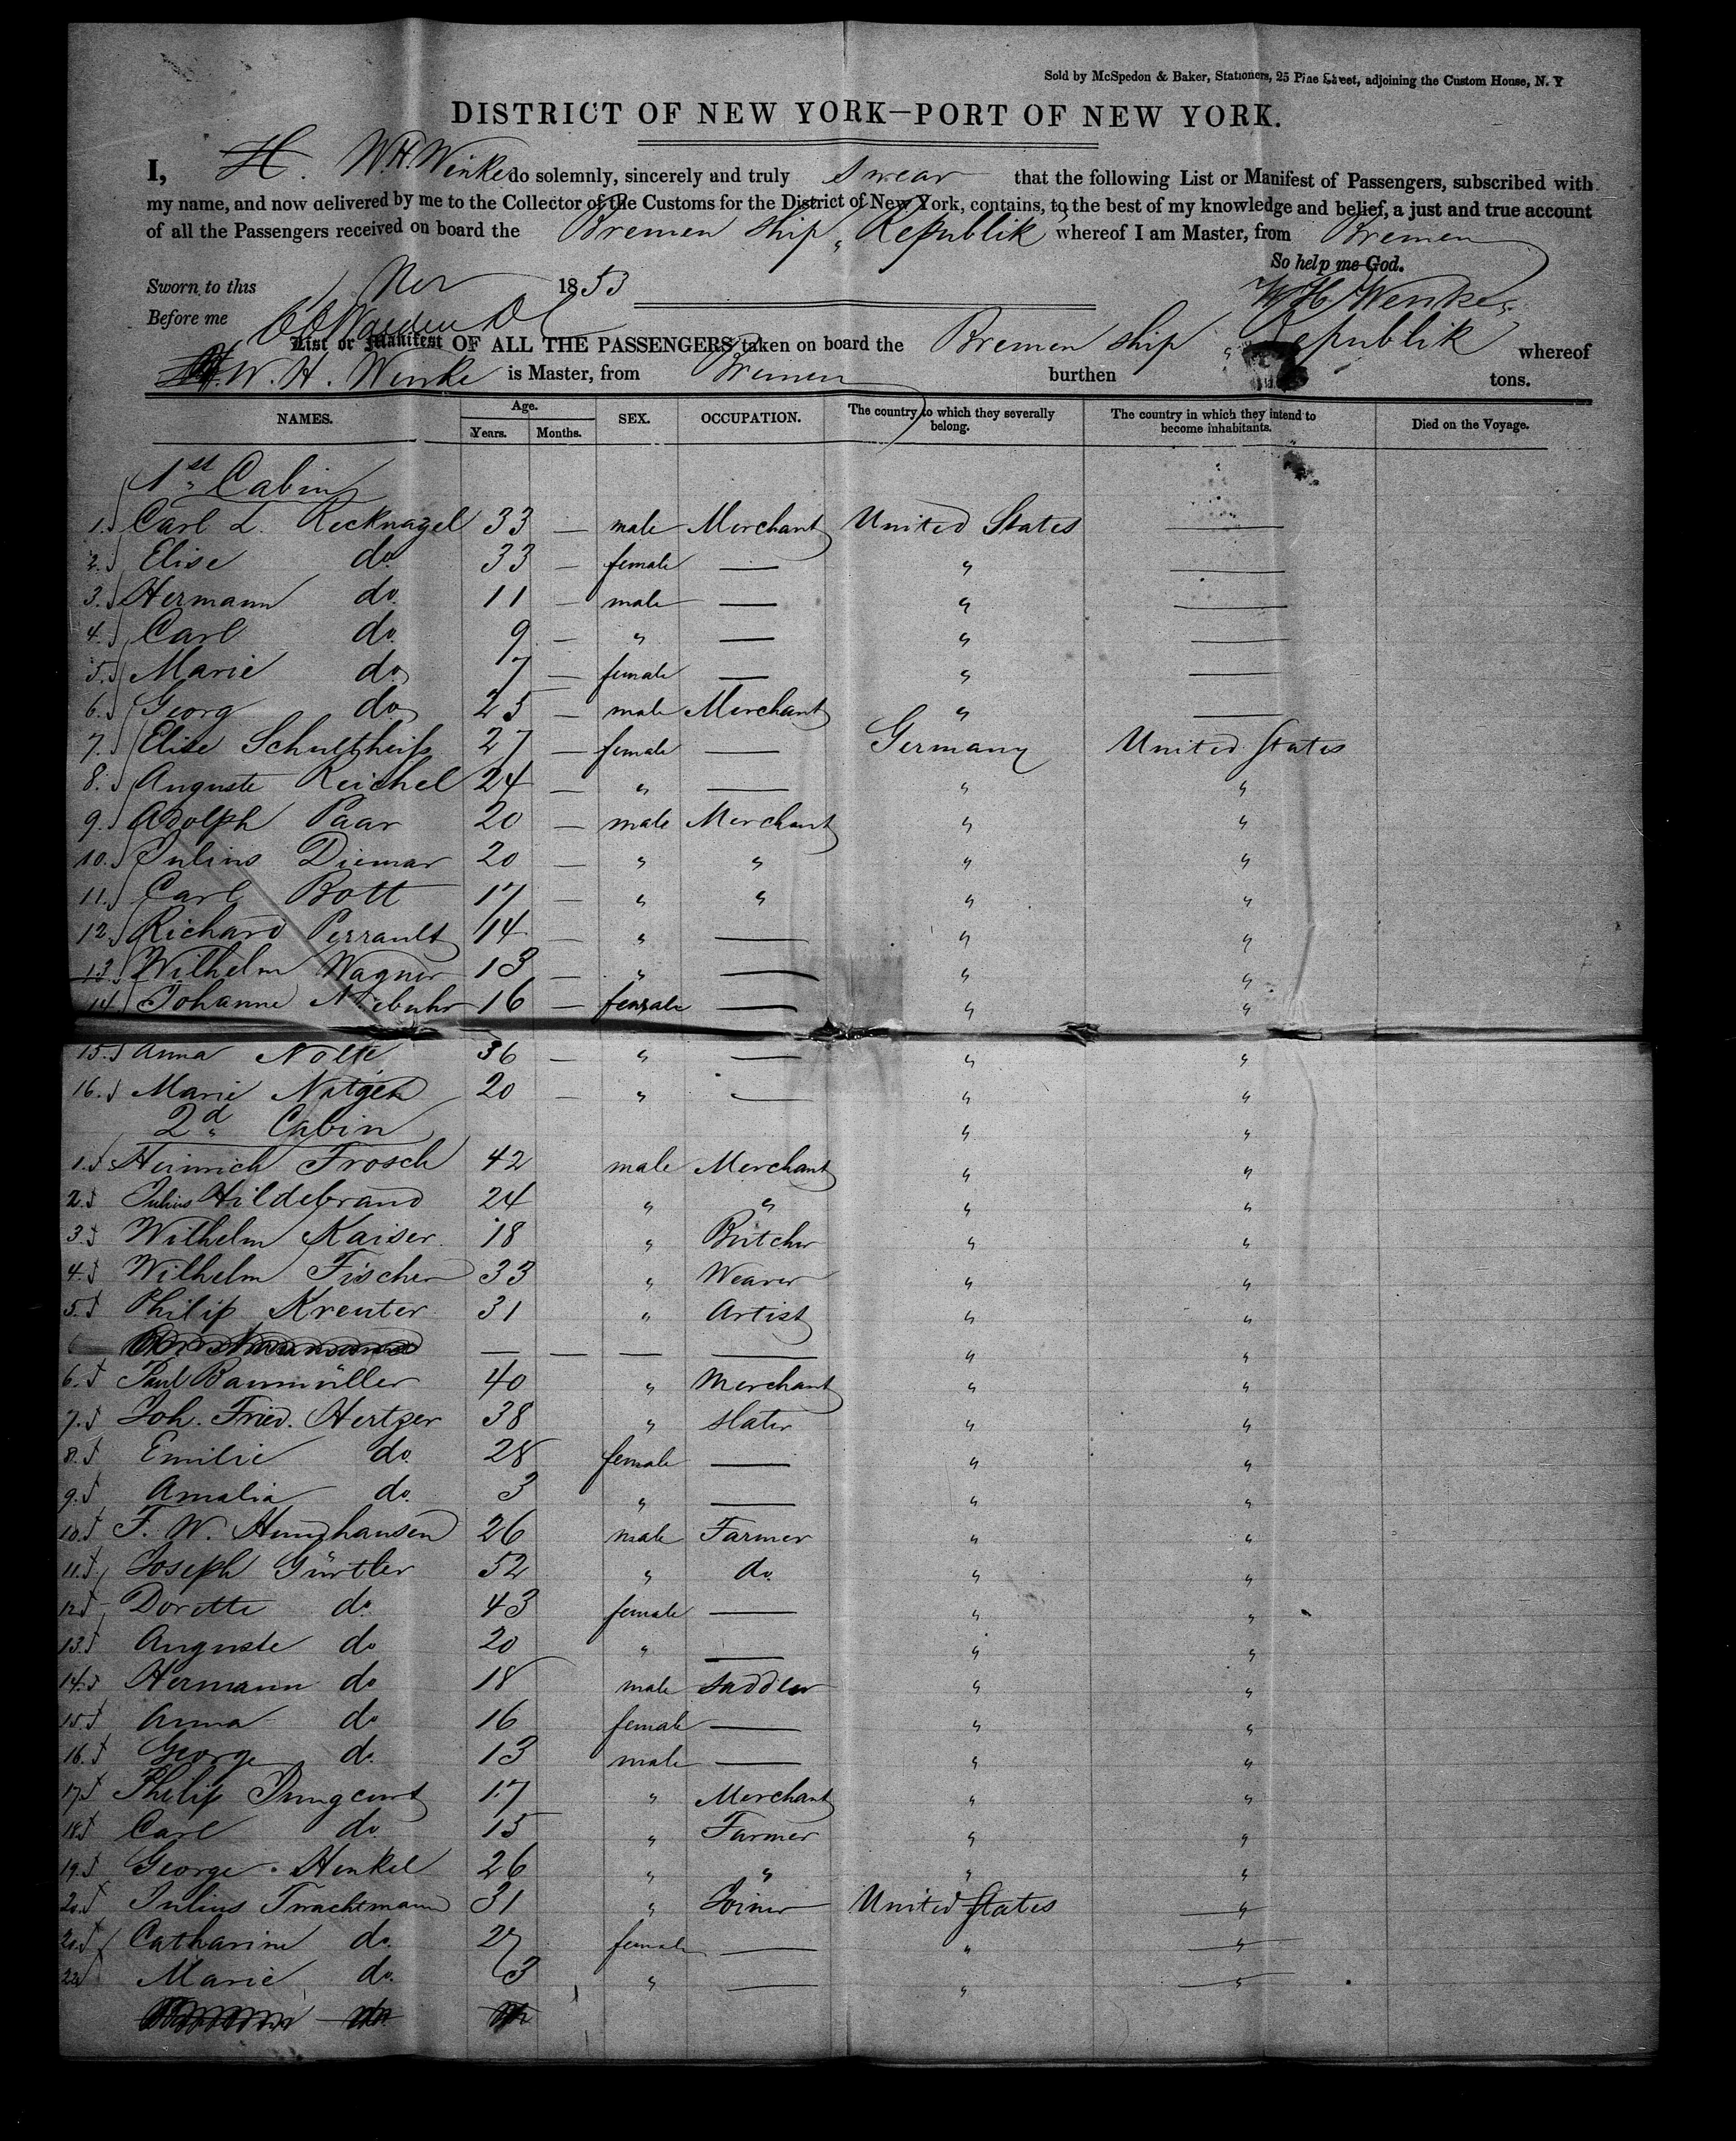 Sold by McSpedon & Baker, Stationers, 25 Pine Street, adjoining the Custom House, N. Y
DISTRICT OF NEW YORK—PORT OF NEW YORK.
I, H. W. H. Wenke do solemnly, sincerely and truly swear that the following List or Manifest of Passengers, subscribed with
my name, and now delivered by me to the Collector of the Customs for the District of New York, contains, to the best of my knowledge and belief, a just and true account
of all the Passengers received on board the Bremen ship „ Republik whereof I am Master, from Bremen
So help me God.
Sworn to this Nov 1853
W H Wenke
Before me
List or Manifest OF ALL THE PASSENGERS taken on board the Bremen ship „ Republik whereof
W. H. Wenke is Master, from Bremen burthen tons.
NAMES. Age. Years. Months. SEX. OCCUPATION. The country to which they severally belong. The country in which they intend to become inhabitants. Died on the Voyage.
1st Cabin
1. Carl L. Recknagel 33 — male Merchant United States —
2. Elise do. 33 — female — " —
3. Hermann do. 11 — male — " —
4. Carl do. 9 — " — " —
5. Marie do. 7 — female — " —
6. Georg do. 25 — male Merchant " —
7. Elise Schultheiß 27 — female — Germany United States
8. Auguste Reichel 24 — " — " "
9. Adolph Paar 20 — male Merchant " "
10. Julius Diemar 20 — " " " "
11. Carl Bott 17 — " " " "
12. Richard Perrault 14 — " — " "
13. Wilhelm Wagner 13 — " — " "
14. Johanne Niebuhr 16 — female — " "
15. Anna Nolte 36 — " — " "
16. Marie 20 — " — " "
2d Cabin " "
1. Heinrich Frosch 42 male Merchant " "
2. Julius Hildebrand 24 " " " "
3. Wilhelm Kaiser 18 " Butcher " "
4. Wilhelm Fischer 33 " Weaver " "
5. Philip Kreuter 31 " Artist " "
6 — — — — " "
6. Paul Baumüller 40 " Merchant " "
7. Joh. Fried. Hertzer 38 " Slater " "
8. Emilie do. 28 female — " "
9. Amalia do. 3 " — " "
10. F. W. 26 male Farmer " "
11. Joseph Gürtler 52 " do. " "
12. Dorette do. 43 female — " "
13. Auguste do 20 " — " "
14. Hermann do 18 male Saddler " "
15. Anna do 16 female — " "
16. George do. 13 male — " "
17. Philip 17 " Merchant " "
18. Carl do. 15 " Farmer " "
19. George Henkel 26 " " " "
20. Julius Trachtmann 31 " Joiner United States "
21. Catharine do. 27 female — " "
22. Marie do. 3 " — " "